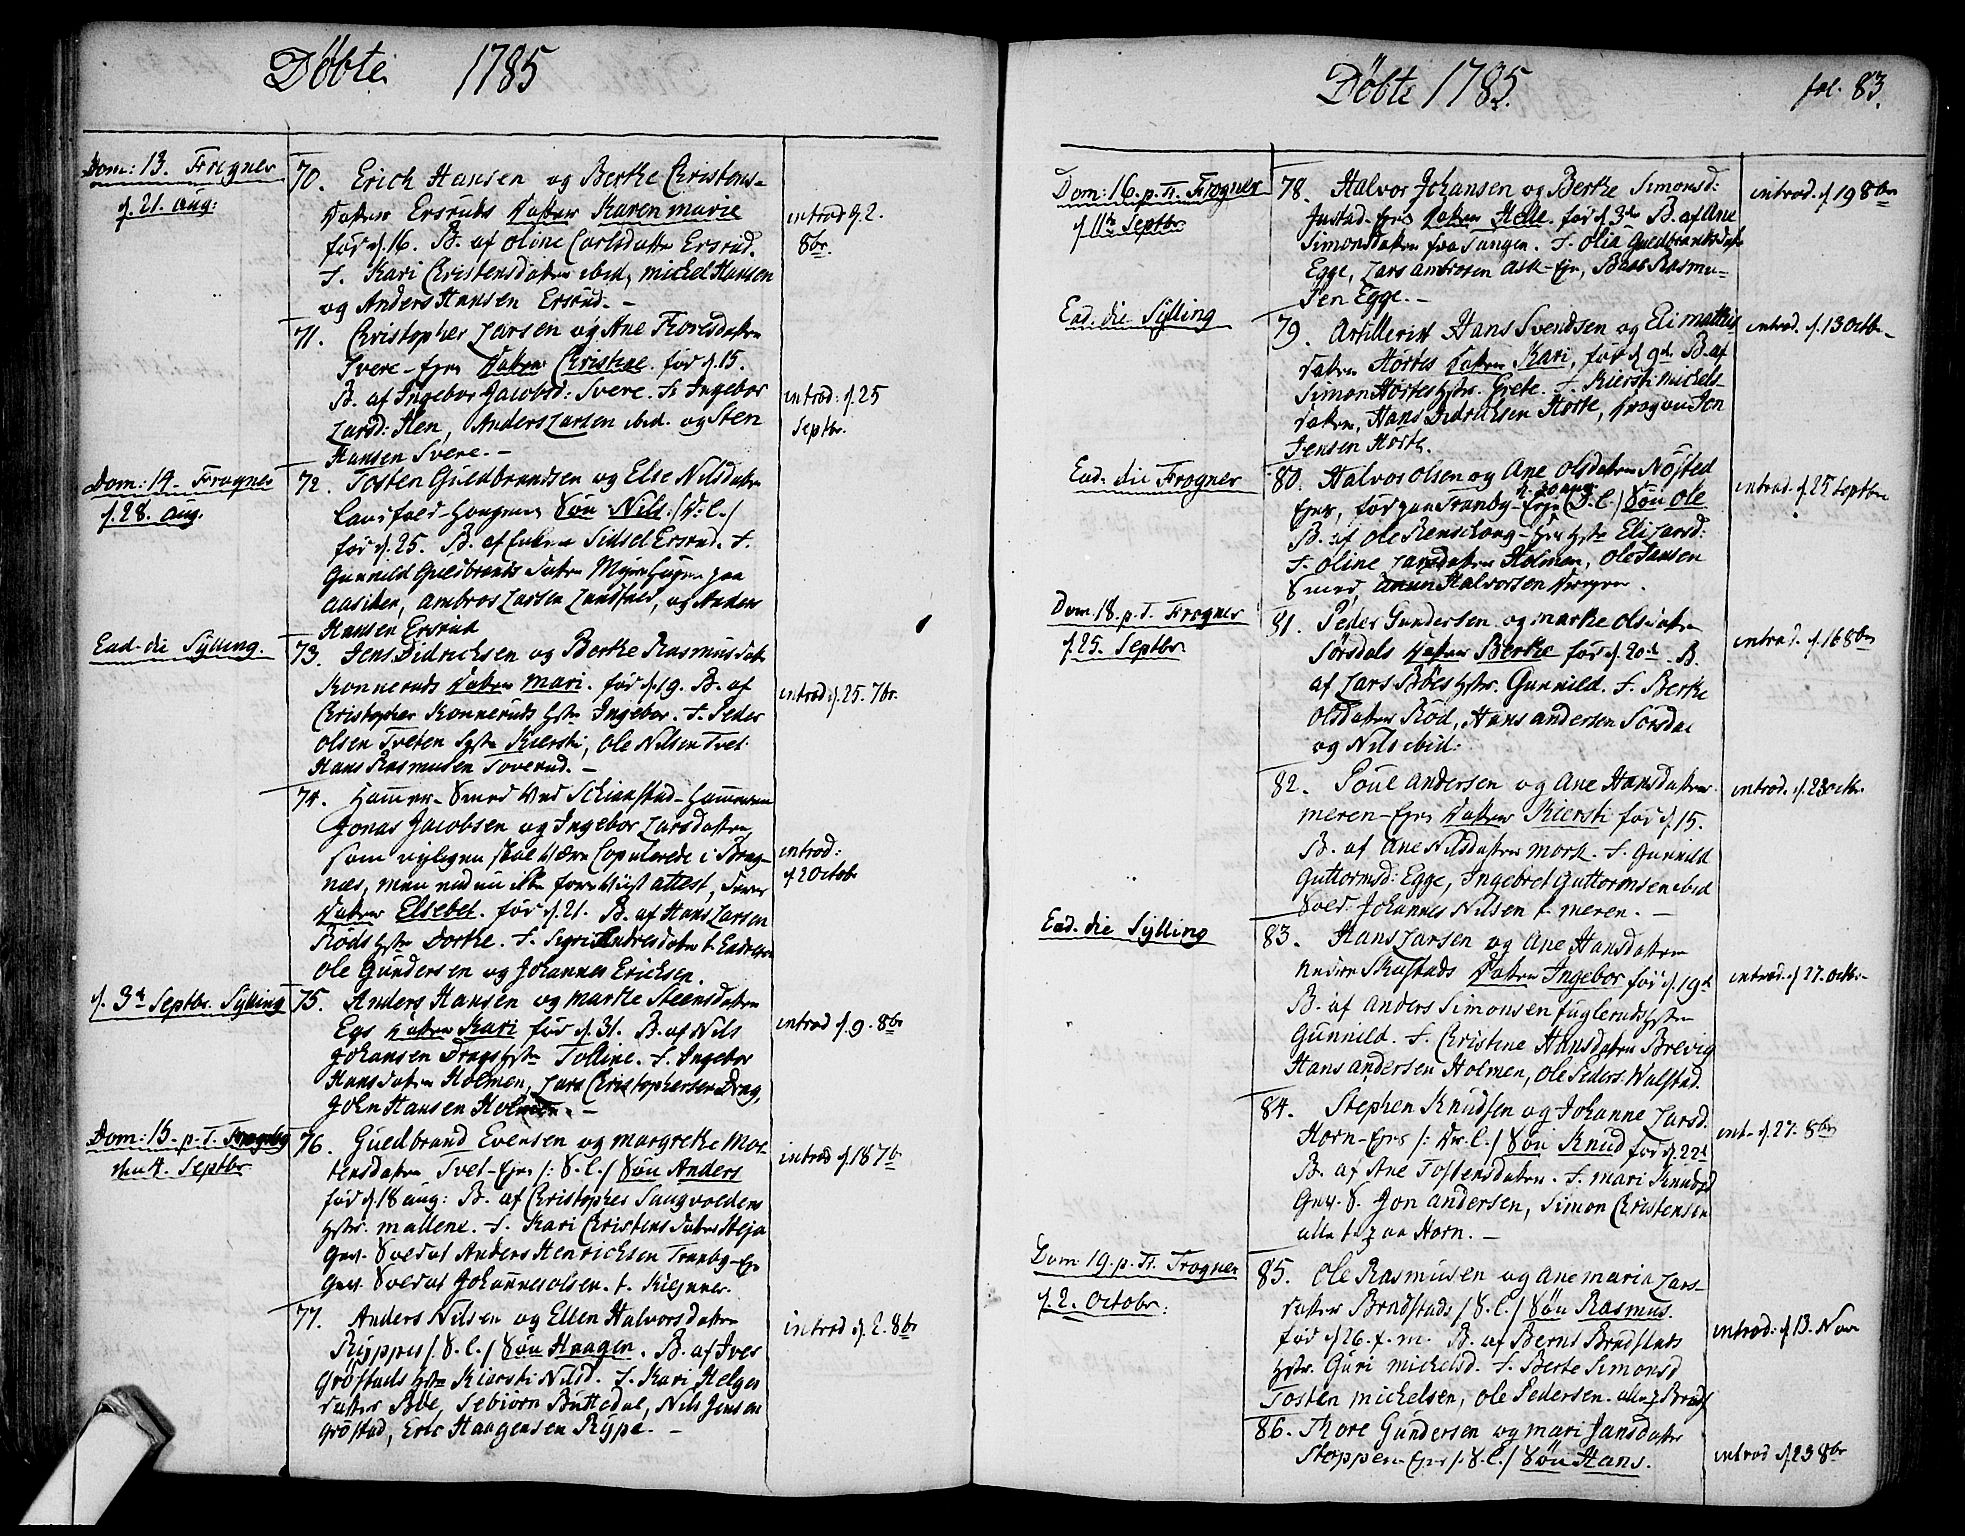 Döbte 1785
Dom: 13. Frogner
d. 21. aug:
70. Erich Hansen og Berthe Christens-
datter Ersruds datter Karen marie
før d. 16. B. af oline Carlsdatter Ersrud.
F. Kari Christensdatter ibid, michel Hansen
og Anders Hansen Ersrud. -
introd d. 2.
8br.
71. Christopher Larsen og Ane Toresdatter
Svere-Ejer datter Christine før d. 15.
B. af Ingebor Jacobsd: Svere. F. Ingebor
Larsd: Sten, Anders Larsen ibid. og Sten
Hansen Svere. -
introd: d. 25
Septbr.
Dom: 14. Frogner
d. 28. aug.
72. Tosten Guldbrandsen og Else Nilsdatter
Søn Nils
før d. 25. B. af Sidsel Ersrud. F.
Gunnild Guldbrands datter paa
Ambros Larsen og Anders
Hansen Ersrud
Ead. die Sylling.
73. Jens Didrichsen og Berthe Rasmusdat
Konneruds datter mari. før d. 19. B. af
Christopher Konneruds hstr Ingebor. F. Peder
olsen Tveten hstr Kiersti, ole Nilsen Tvet.
Hans Rasmusen Toverud. -
introd d. 25. 7br.
74. Hammer-Smed ved
Jonas Jacobsen og Ingebor Larsdatter,
som skal være Copulerede i Brag-
næs, men endnu ikke attest,
datter Elsebet. før d. 21. B. af Hans Larsen
Röds hstr Dorthe. F. Andresdatter
ole Gundersen og Johannes Ericksen.
introd:
d. 2 octobr
d. 3d Septbr. Sylling
75. Anders Hansen og marthe Steensdatter
Egs datter Kari før d. 31. B. af Nils
Johansen Drags hstr Tolline. F. Ingebor
Hansdatter Holmen, Lars Christophersen Drag,
John Hansen Holmen. -
introd d. 9. 8br
Dom: 15. p. T. Frogner
den 4. Septbr
76. Guldbrand Evensen og margrethe Mor-
tensdatter Tvet-Ejer /: S. C. / Søn Anders
før d. 18 aug: B. af Christopher
hstr. mallene. F. Kari Christens datter
Gev. Soldat Anders Henrichsen Tranby-Ejer
Gev. Soldat Johannes olsen. t.
introd d. 18 7br
77. Anders Nilsen og Ellen Halvorsdatter
Rypper / S. C. / Søn Haagen. B. af Iver
Gröstads hstr Kiersti Nilsd. F. Kari Helges
datter Böe, Buttedal, Nils Jensen
Gröstad, Eric Haagensen Rype. -
introd d. 2. 8br
Döbte 1785.
fol. 83.
Dom: 16. p. Tr. Frogner
d. 11te Septbr
78. Halvor Johansen og Berthe Simonsd:
Justad-Ejer datter Helle. før d. 3de B. af Ane
Simonsdatter fra Tangen. F. olia Guldbrandsdat
Egge, Lars Ambrosen Ask-Ejer, Rasmu-
sen Egge. -
introd. d. 19 8br
Ead. die Sylling
79. Artillerist Hans Svendsen og Eli mathis
datter Hörtes datter Kari, før d. 9de B. af
Simon Hörtes hstr. Grete. F. Kiersti michels
datter, Hans Didrichsen Hörte, Dragon Jen
Jensen Hörte.
introd. d. 13 octbr
Ead. die Frogner
80. Halvor olsen og Ane olsdatter Nösted
Ejer, før paa Tranby-Ejer d. 30 aug (S. C.) Søn ole
B. af ole hstr Eli Larsd:
F. oline Larsdatter Holmen, ole Jansen
Smed, Halvorsen
introd. d. 25 Septbr
Dom. 18. p. T. Frogner
d. 25. Septbr
81. Peder Gundersen og marthe olsdatter
Sörsdals datter Berthe før d. 20d. B.
af Lars Böes hstr. Gunnild. F. Berthe
olsdatter Röd, Hans andersen Sörsdal
og Nils ibid:
introd. d. 16 8br
82. Poul Andersen og Ane Hansdatter
meren-Ejer datter Kiersti før d. 15.
B. af Ane Nilsdatter mork. F. Gunnild
Guttormsd: Egge, Ingebret Guttormsen ibid
Sold: Johannes Nilsen t. meren. -
introd. d. 23 octbr.
Ead. die Sylling
83. Hans Larsen og Ane Hansdatter
Nedre Skustads datter Ingebor før d. 19d
B. af Anders Simonsen Fugleruds hstr
Gunnild. F. Christine Hansdatter Brevig
Hans Andersen Holmen, ole Peders. Walstad.
introd. d. 27. octbr.
84. Stephen Knudsen og Johanne Larsd.
Horn-Ejer /: S. C. / Søn Knud før d. 22d
B. af Ane Tostensdatter. F. mari Knudsd
Gev. S. Jon Andersen, Simon Christensen
alle t. paa Horn. -
int. d. 27. 8br
Dom 19. p. Tr. Frogner
d. 2. Octobr:
85. Ole Rasmusen og Ane maria Lars-
datter Bradstads / S. C. / Søn Rasmus.
før d. 26. f. m. B. af Bernt Bradstads
hstr. Guri michelsd. F. Berte Simonsd
Tosten michelsen, ole Pedersen. alle Brads
introd: d. 13. Nov
86. Thore Gundersen og mari Jansdatter
Stoppen-Ejer /: S. C. / Søn Hans.
introd d. 23 8br